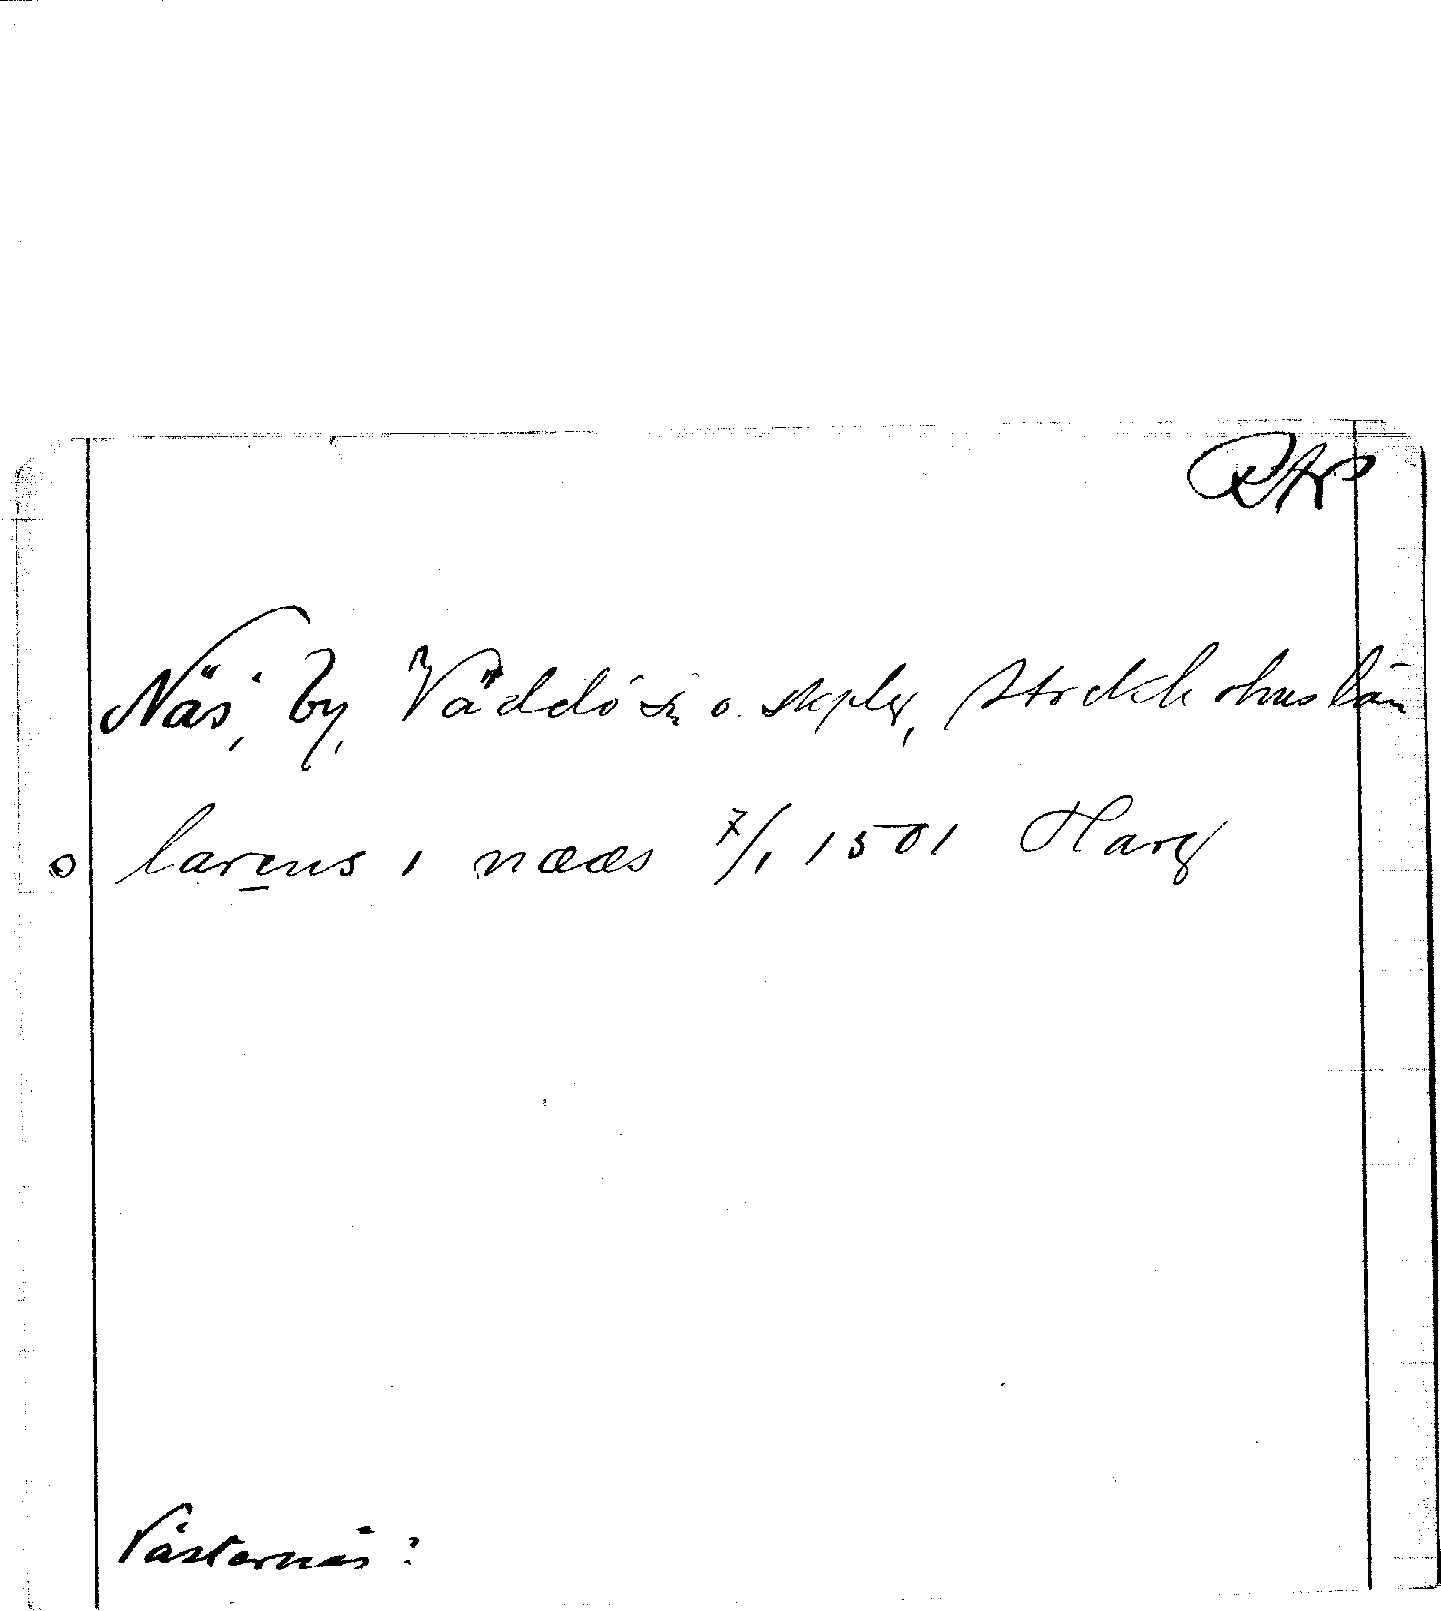 Näs, by, Väddö sn o. skplg, Stockholms län
o larens i nææs 7/1 1501 Harg
Västernäs?